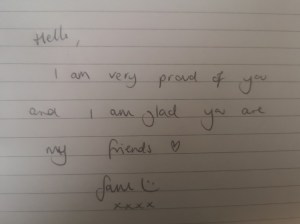 Hello,
I am very proud of you
and I am glad you are
my friends ♡
xxxx